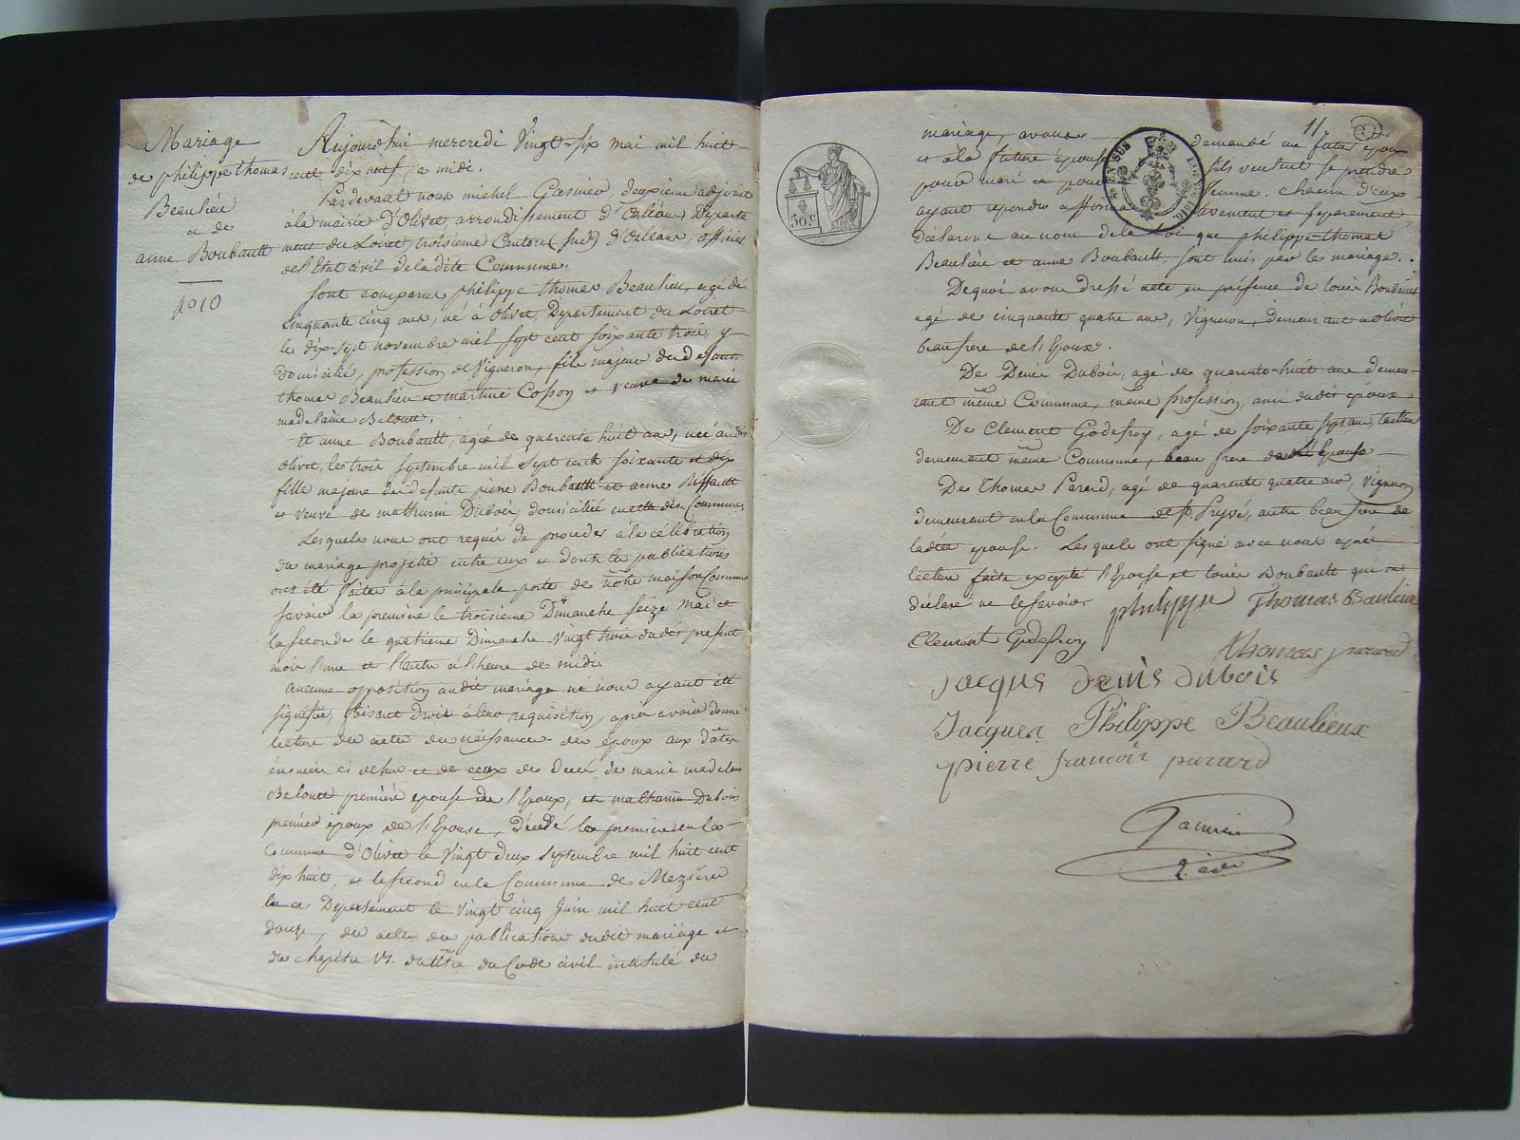 Mariage
de philippe thomas
Beaulieu
et de
anne Boubault
No 10
Aujourd'hui mercredi Vingt-six mai mil huit
cent dix neuf a midi.
Pardevant nous michel Gasnier deuxieme adjoint
à la mairie d'Olivet arrondissement d'Orléans Departe
ment du Loiret, troisieme Canton (sud) d'Orleans, officier
de l'Etat civil de la dite Commune.
Sont comparus philippe thomas Beaulieu, agé de
Cinquante cinq ans, né à Olivet, Département du Loiret
le dix-sept novembre mil sept cent soixante trois, y
domicilié, profession de Vigneron, fils majeur du defunt
thomas Beaulieu et martine Cosson et veuve de marie
madelaine Beloutt.
Et anne Boubault, agée de quarente huit ans, née audit
Olivet, le trois septembre mil sept cent soixante et dix
fille majeure du defunte pierre Boubault et anne
et veuve de mathurin Dubois domiciliée cette dite Commune
Lesquels nous ont requis de proceder à la célébration
du mariage projetté entre eux et dont les publications
ont été faites à la principale porte de notre maison Commune
Savoir la première le troisieme Dimanche seize mai et
la seconde le quatrieme Dimanche vingt trois dudit present
mois l'une et l'autre à l'heure de midi.
aucune opposition audit mariage ne nous ayant été
signifiée, faisant droit à leur requisition, après avoir donné
lecture des actes de naissance des époux aux dates
énoncés ci dessus et de ceux des Decès de marie madelaine
Beloutt première epouse de l'Epoux, et mathurin Dubois
premier époux de l'Epouse, décédé la premiere en la
Commune d'Olivet le Vingt deux septembre mil huit cent
dix huit, et le second en la Commune de Mezières
Departement le Vingt cinq Juin mil huit cent
douze, des actes de publications dudit mariage et
du chapitre VI. du titre du Code civil intitulé du
11
mariage, avons demandé au futur époux
et à la future épouse s'ils veulent se prendre
pour mari et pour femme. Chacun d'eux
ayant repondu affirmativement et separement
déclarons au nom de la Loi que philippe thomas
Beaulieu et anne Boubault sont unis par le mariage.
De quoi avons dressé acte en présence de louis Boubault
agé de cinquante quatre ans, Vigneron, demeurant à Olivet
beau frere de l'Epoux.
De Denis Dubois, agé de quarente-huit ans demeu-
rant même Commune, même profession, ami dudit époux.
De Clement Godefroy, agé de soixante sept ans,
demeurant même Commune, beau frere de l'Epouse
De Thomas Parard, agé de quarente quatre ans, Vigneron
demeurant en la Commune de St. Prisé, autre beau frere de
ladite epouse. Lesquels ont signé avec nous après
lecture faite excepté l'Epouse et louis Boubault qui ont
déclaré ne le savoir.
philippe Thomas Beaulieu
Clement Godefroy
thomas parard
Jacques denis dubois
Jacques Philippe Beaulieux
pierre francois parard
Gasnier
2 adj
EN SUS